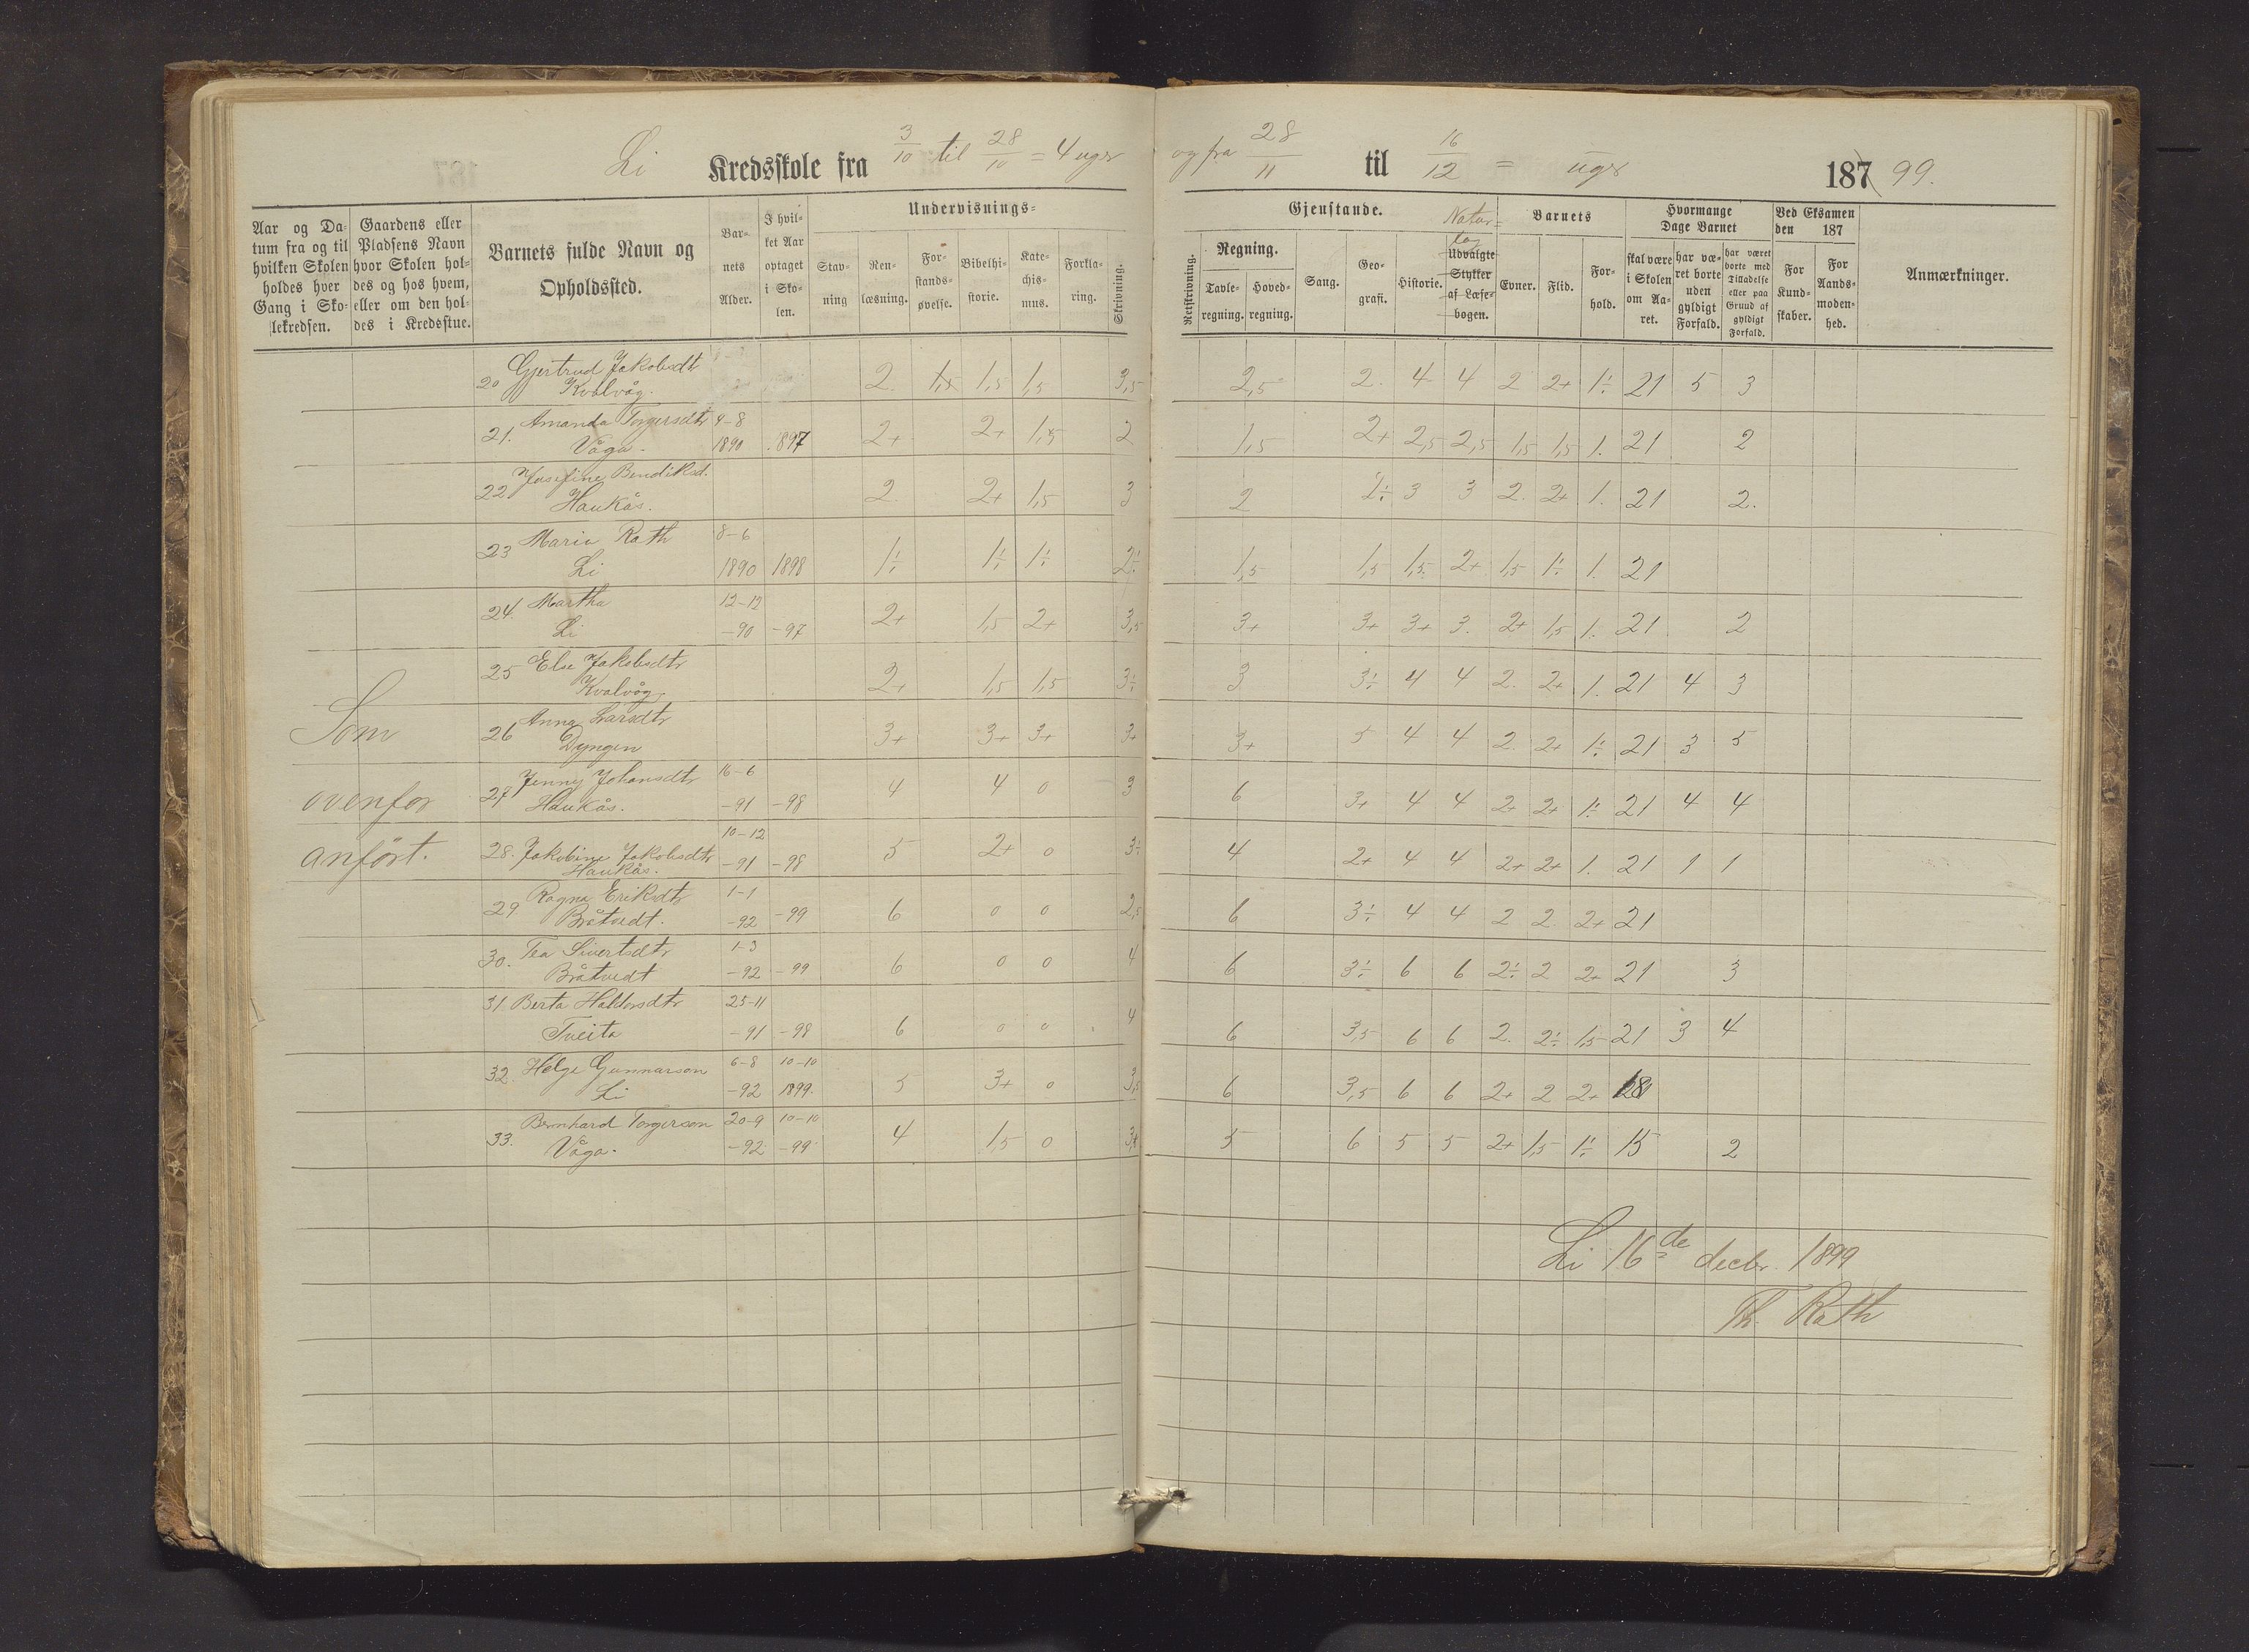 Li Kredsskole fra 3/10 til 28/10 = 4 uger og fra 28/11 til 16/12 = uger 187 99.
Aar og Da- tum fra og til hvilken Skolen holdes hver Gang i Sko- lekredsen.
Gaardens eller Pladsens Navn hvor Skolen hol- des og hos hvem, eller om den hol- des i Kredsstue.
Barnets fulde Navn og Opholdssted.
Bar- nets Alder.
I hvil- ket Aar optaget i Sko- len.
Undervisnings-
Stav- ning
Ren- læsning.
For- stands- øvelse.
Bibelhi- storie.
Kate- chis- mus.
Forkla- ring.
Skrivning.
Gjenstande.
Retskrivning.
Regning.
Tavle- regning.
Hoved- regning.
Sang.
Geo- grafi.
Historie.
Natur-
Udvalgte Stykker af Læse- bogen.
Barnets
Evner.
Flid.
For- hold.
Hvormange Dage Barnet
skal være i Skolen om Aa- ret.
har væ- ret borte uden gyldigt Forfald.
har været borte med Tilladelse eller paa Grund af gyldigt Forfald.
Ved Eksamen den 187
For Kund- skaber.
For Aands- moden- hed.
Anmærkninger.
20 Gjertrud Jakobsdtr Kvalvåg. 2. 1,5 1,5 1,5 3,5 2,5 2. 4 4 2 2+ 1÷ 21 5 3
21. Amanda Torgersdtr Våga. 4-8 1890 1897 2+ 2+ 1,5 2 1,5 2+ 2,5 2,5 1,5 1,5 1. 21 2
22 Josefine Bendiksd. Haukås. 2. 2+ 1,5 3 2 2÷ 3 3 2. 2+ 1. 21 2.
23 Maria Rath Li 8-6 1890 1898 1÷ 1÷ 1÷ 2÷ 1,5 1,5 1,5 2+ 1,5 1÷ 1. 21
24. Martha Li 12-12 -90 -97 2+ 1,5 2+ 3,5 3+ 3+ 3+ 3. 2+ 1,5 1. 21 2
25 Else Jakobsdtr Kvalvåg. 2+ 1,5 1,5 3÷ 3 3÷ 4 4 2. 2+ 1. 21 4 3
Som
26 Anna Larsdtr Dyngen 3+ 3+ 3+ 3+ 3+ 5 4 4 2. 2+ 1÷ 21 3 5
ovenfor
27 Jenny Johansdtr Haukås. 16-6 -91 -98 4 4 0 3 6 3+ 4 4 2+ 2+ 1÷ 21 4 4
anført.
28. Jakobine Jakobsdtr Haukås. 10-12 -91 -98 5 2+ 0 3÷ 4 2+ 4 4 2+ 2+ 1. 21 1 1
29 Ragna Eriksdtr Bråtvedt. 1-1 -92 -99 6 0 0 2,5 6 3÷ 4 4 2 2 2+ 21
30. Tea Sivertsdtr Bråtvedt 1-3 -92 -99 6 0 0 4 6 3÷ 6 6 2÷ 2 2+ 21 3
31. Berta Haldorsdtr Tveita 23-11 -91 -98 6 0 0 4 6 3,5 6 6 2. 2÷ 1,5 21 3 4
32. Helge Gunnarson Li 6-8 -92 10-10 1899. 5 3+ 0 3,5 6 3,5 6 6 2+ 2 2+ 18
33. Bernhard Torgerson Våga. 20-9 -92 10-10 -99 4 1,5 0 3+ 5 6 5 5 2+ 1,5 1÷ 15 2
Li 16de decbr. 1899
Th. Rath